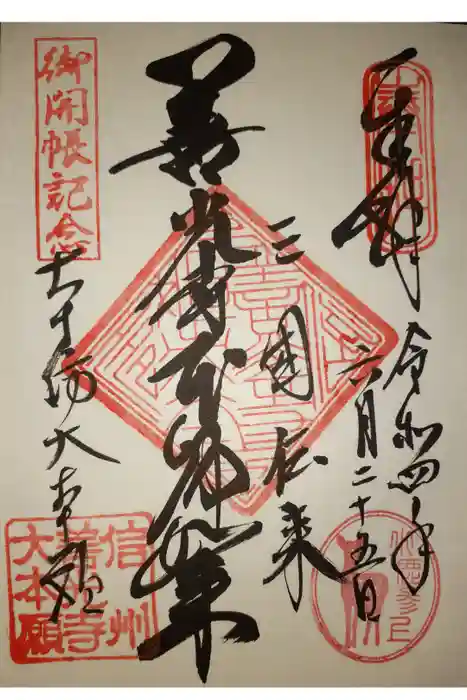 奉拝
令和四年
六月二十五日
三國伝来
善光寺本師如来
御開帳記念
大本願
信州
善光寺
大本願